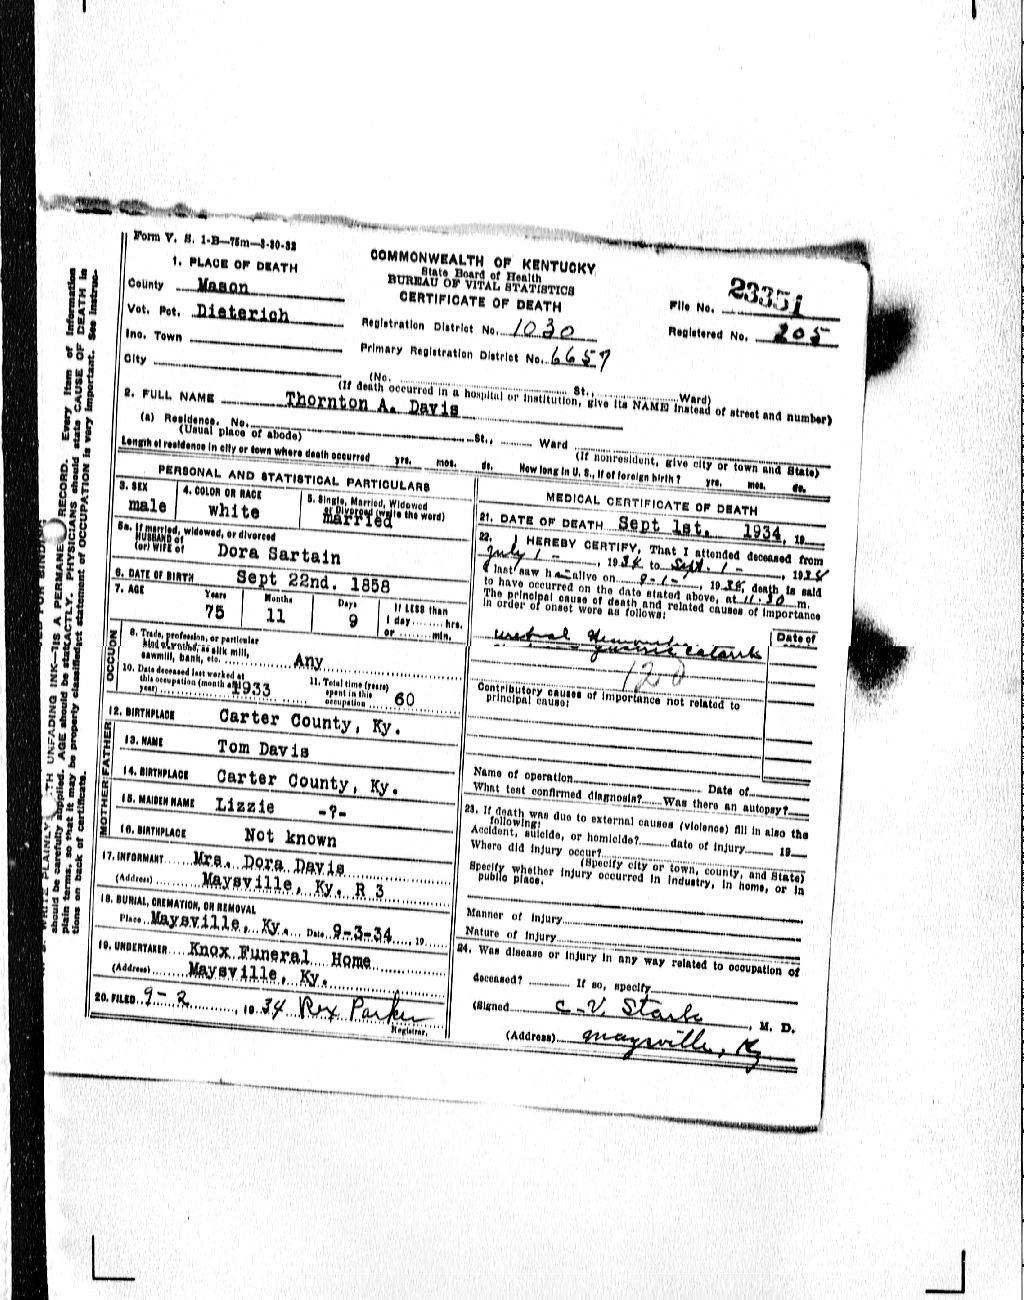 Form V. S. 1-B—75m—8-30-32
COMMONWEALTH OF KENTUCKY
State Board of Health
BUREAU OF VITAL STATISTICS
CERTIFICATE OF DEATH
File No. 23351
Registered No. 205
Registration District No. 1030
Primary Registration District No. 6657
1. PLACE OF DEATH
County Mason
Vot. Pct. Dieterich
Inc. Town
City
(No. St., Ward)
(If death occurred in a hospital or institution, give its NAME instead of street and number)
2. FULL NAME Thornton A. Davis
(a) Residence. No. St., Ward
(Usual place of abode) (If nonresident, give city or town and State)
Length of residence in city or town where death occurred yrs. mos. ds. How long in U. S., if of foreign birth? yrs. mos. ds.
PERSONAL AND STATISTICAL PARTICULARS
3. SEX
male
4. COLOR OR RACE
white
5. Single, Married, Widowed
or Divorced (write the word)
married
5a. If married, widowed, or divorced
HUSBAND of
(or) WIFE of Dora Sartain
6. DATE OF BIRTH Sept 22nd. 1858
7. AGE Years Months Days If LESS than
75 11 9 1 day hrs.
or min.
OCCUPATION
8. Trade, profession, or particular
kind of work as silk mill,
sawmill, bank, etc. Any
10. Date deceased last worked at
this occupation (month and
year) 1933
11. Total time (years)
spent in this
occupation 60
12. BIRTHPLACE Carter County, Ky.
FATHER
13. NAME Tom Davis
14. BIRTHPLACE Carter County, Ky.
MOTHER
15. MAIDEN NAME Lizzie -?-
16. BIRTHPLACE Not known
17. INFORMANT Mrs. Dora Davis
(Address) Maysville, Ky. R 3
18. BURIAL, CREMATION, OR REMOVAL
Place Maysville, Ky. Date 9-3-34, 19
19. UNDERTAKER Knox Funeral Home
(Address) Maysville, Ky.
20. FILED 9-2, 1934 Rex Parker
Registrar.
MEDICAL CERTIFICATE OF DEATH
21. DATE OF DEATH Sept 1st. 1934, 19
22. I HEREBY CERTIFY, That I attended deceased from
July 1-, 1934 to Sept. 1-, 1934
I last saw h alive on 9-1-, 1934, death is said
to have occurred on the date stated above, at 11:30 m.
The principal cause of death and related causes of importance
in order of onset were as follows:
Date of
120
Contributory causes of importance not related to
principal cause:
Name of operation Date of
What test confirmed diagnosis? Was there an autopsy?
23. If death was due to external causes (violence) fill in also the
following:
Accident, suicide, or homicide? date of injury 19
Where did injury occur?
(Specify city or town, county, and State)
Specify whether injury occurred in industry, in home, or in
public place.
Manner of injury
Nature of injury
24. Was disease or injury in any way related to occupation of
deceased? If so, specify
(Signed C. V. Stark, M. D.
(Address) Maysville, Ky
WRITE PLAINLY, UNFADING INK—THIS IS A PERMANENT RECORD. Every item of information
should be carefully supplied. AGE should be stated EXACTLY. PHYSICIANS should state CAUSE OF DEATH in
plain terms, so that it may be properly classified. Exact statement of OCCUPATION is very important. See instruc-
tions on back of certificate.